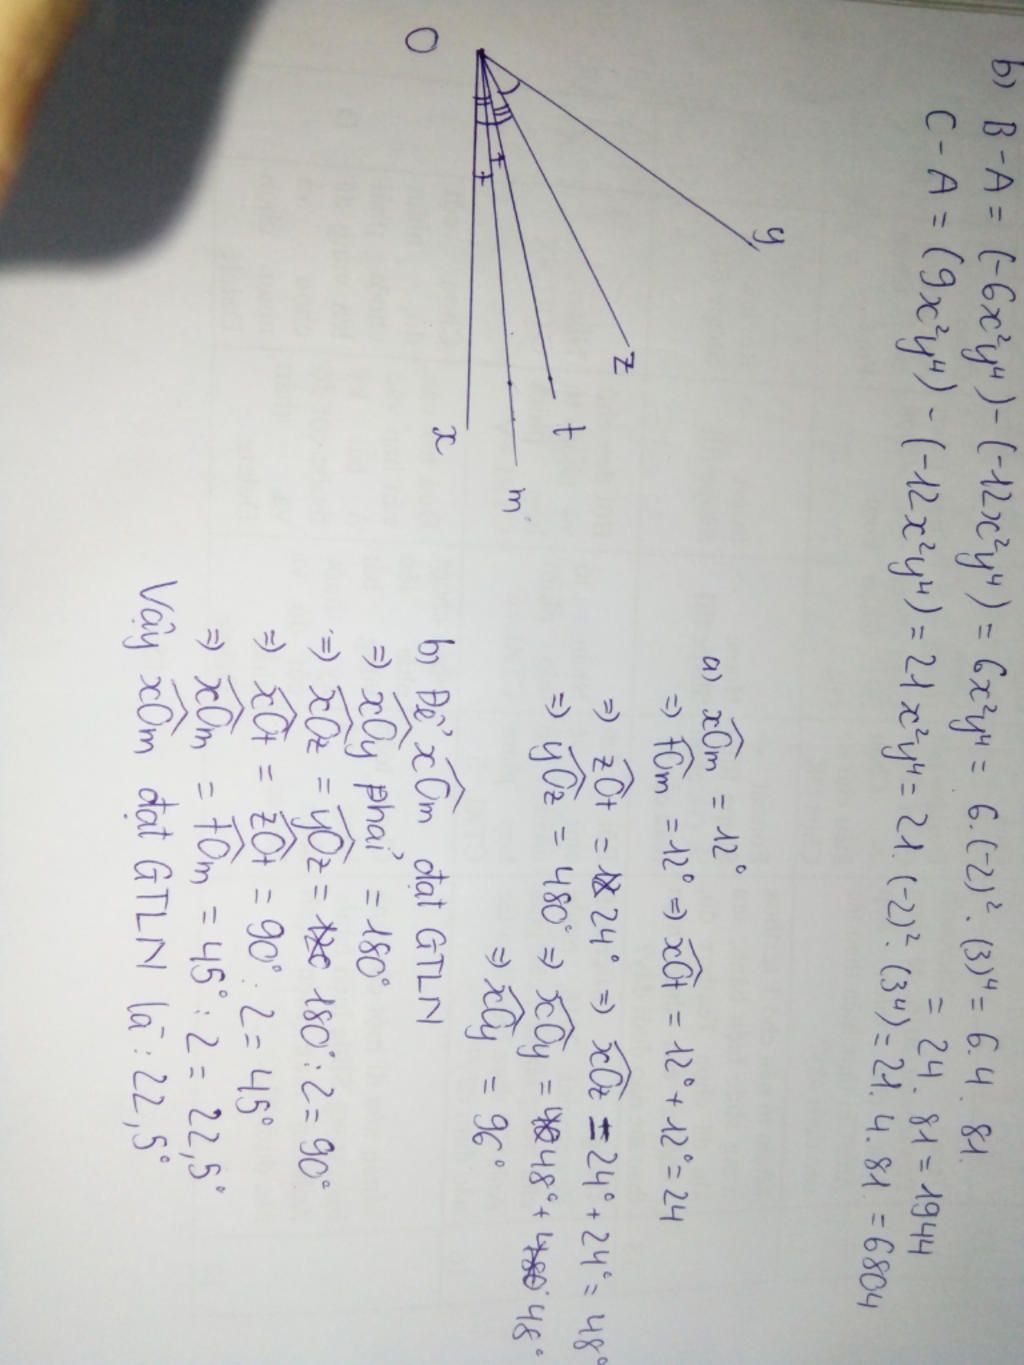 b) B - A = (-6x²y⁴) - (-12x²y⁴) = 6x²y⁴ = 6.(-2)².(3)⁴ = 6.4.81.
= 24.81 = 1944
C - A = (9x²y⁴) - (-12x²y⁴) = 21x²y⁴ = 21.(-2)².(3⁴) = 21.4.81 = 6804
O
y
z
t
m
x
a) xOm = 12°
=> tOm = 12° => xOt = 12° + 12° = 24
=> zOt = 24° => xOz = 24° + 24° = 48°
=> yOz = 480° => xOy = 48° + 48°
=> xOy = 96°
b, Để xOm đạt GTLN
=> xOy phải = 180°
=> xOz = yOz = 180° : 2 = 90°
=> xOt = zOt = 90° : 2 = 45°
=> xOm = tOm = 45° : 2 = 22,5°
Vậy xOm đạt GTLN là : 22,5°